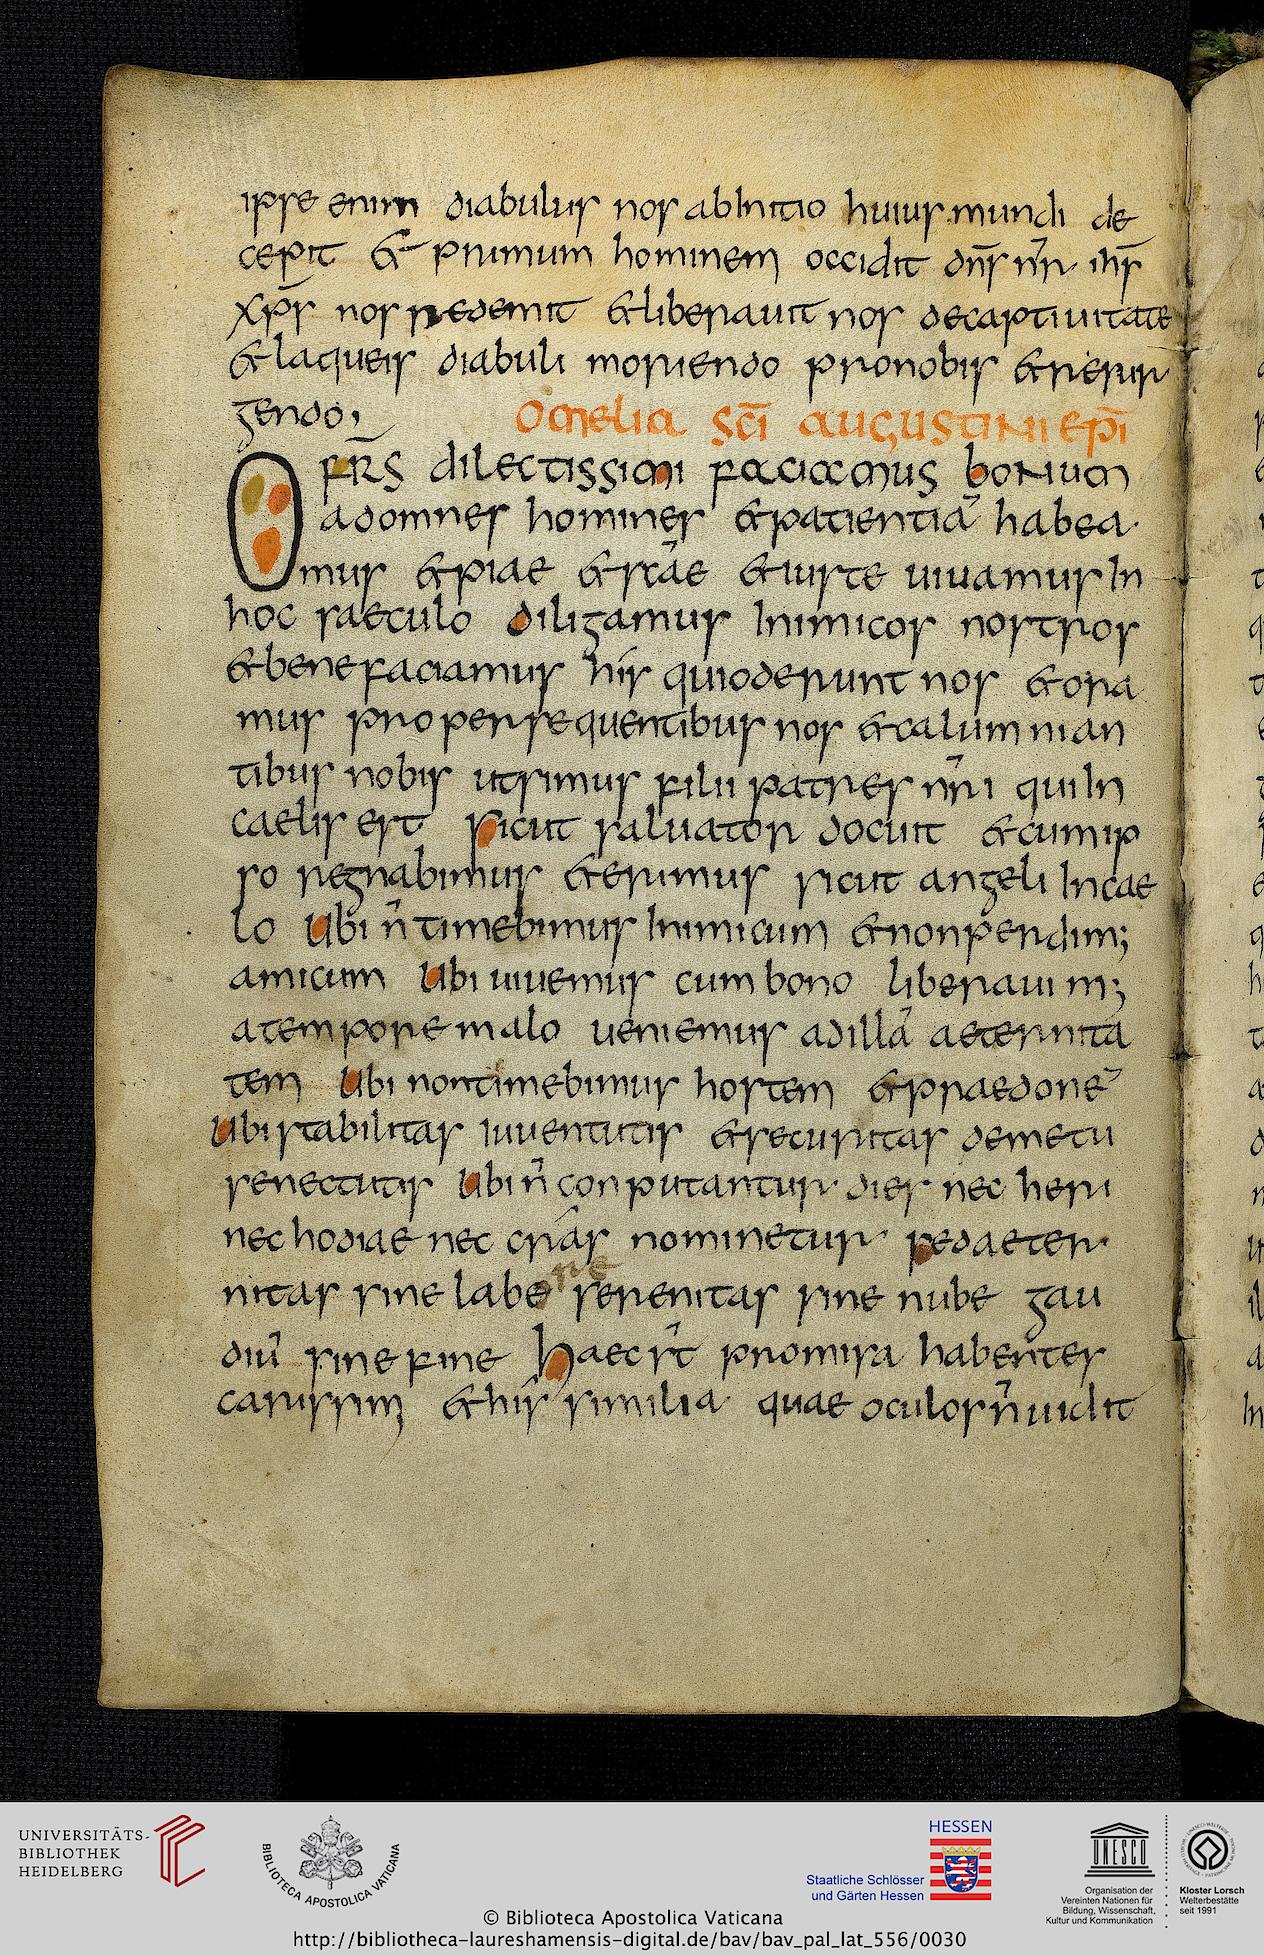 ipse enim diabulus nos abinitio huius mundi de
cepit & primum hominem occidit dn̄s nr̄ ih̄s
xp̄s nos redemit &liberauit nos decaptiuitate
&laqueis diabuli moriendo pronobis &resur
gendo,
Omelia sc̄i augustini ep̄i
O fr̄s dilectissimi faciamus bonum
adomnes homines &patientiā habea
mus &piae &sc̄ae &iuste uiuamus in
hoc saeculo diligamus inimicos nostros
&bene faciamus his quioderunt nos &ora
mus propersequentibus nos &calumnian
tibus nobis utsimus filii patres nr̄i quiin
caelis est sicut saluator docuit &cumip
so regnabimus &erimus sicut angeli incae
lo ubi n̄ timebimus inimicum &nonperdim;
amicum ubi uiuemus cum bono liberauim;
atempore malo ueniemus adillā aeternita
tem ubi nontimebimus hostem &praedonē
ubistabilitas iuuentutis &securitas demetu
senectutis ubi n̄ conputantur dies nec heri
nec hodiae nec cras nominetur sedaeter
nitas sine labe serenitas sine nube gau
diū sine fine haec s̄t promisa habentes
carissim &his similia quae oculos n̄ uidit
UNIVERSITÄTS-
BIBLIOTHEK
HEIDELBERG
BIBLIOTECA APOSTOLICA VATICANA
HESSEN
Staatliche Schlösser
und Gärten Hessen
UNESCO
Organisation der
Vereinten Nationen für
Bildung, Wissenschaft,
Kultur und Kommunikation
Kloster Lorsch
Welterbestätte
seit 1991
© Biblioteca Apostolica Vaticana
http://bibliotheca-laureshamensis-digital.de/bav/bav_pal_lat_556/0030